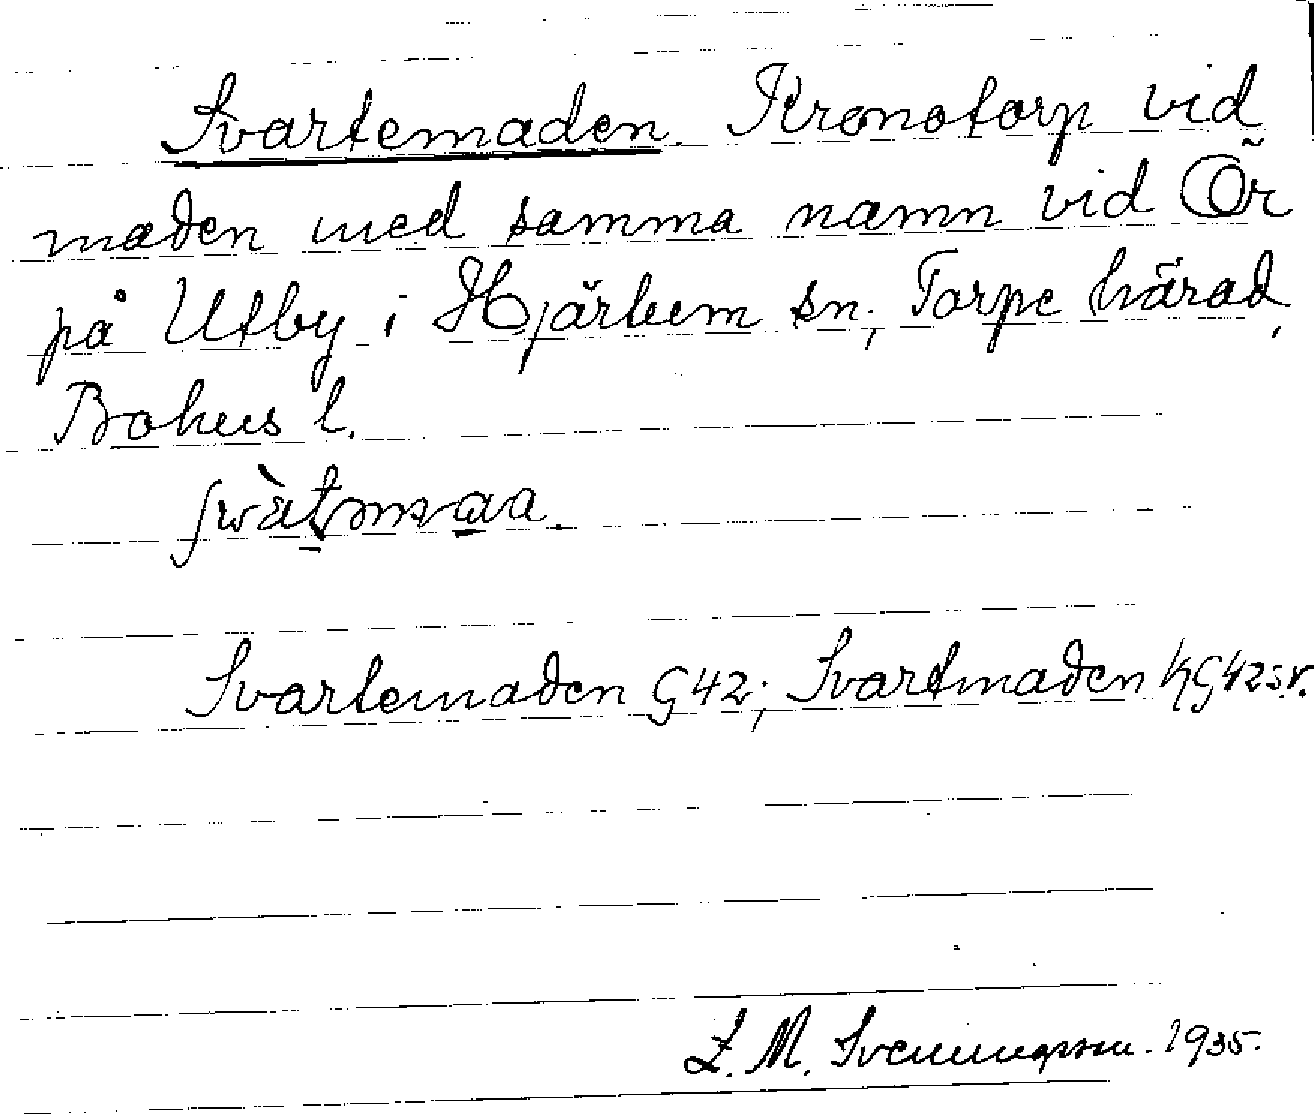 Svartemaden. Kronotorp vid
maden med samma namn vid Ör
på Utby i Hjärtum sn, Torpe härad,
Bohus l.
Svartemaden G42; Svartmaden KG42sv.
1935.